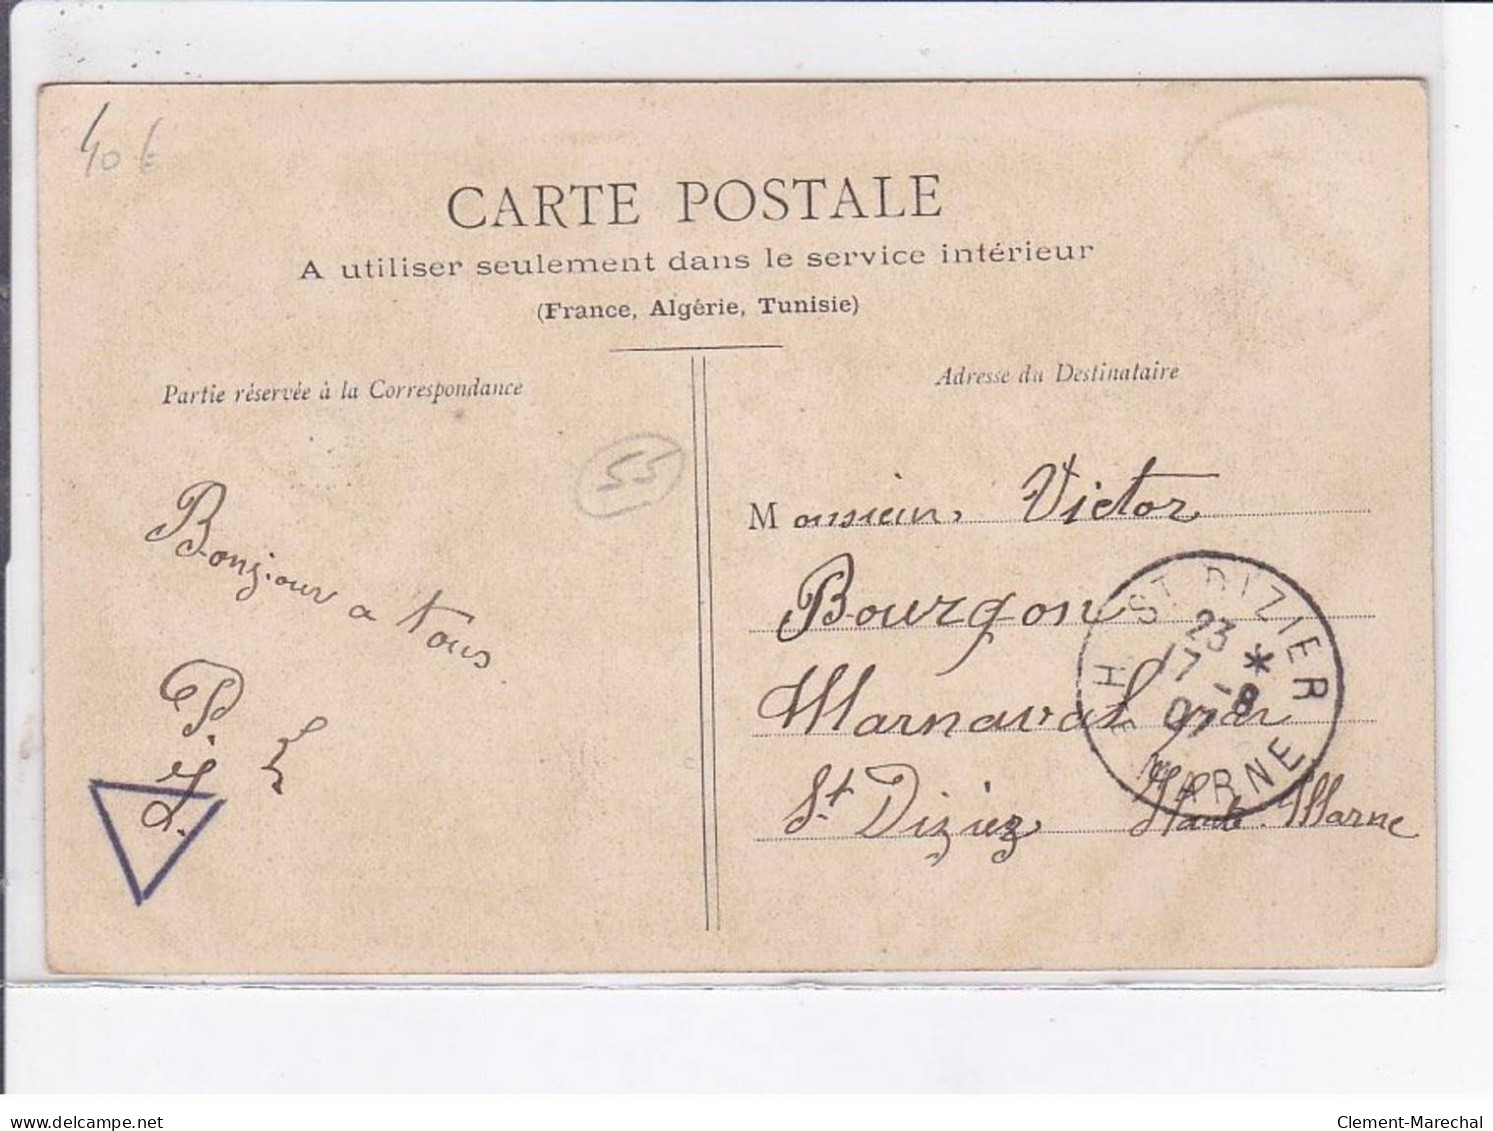 40 €
CARTE POSTALE
A utiliser seulement dans le service intérieur
(France, Algérie, Tunisie)
Partie réservée à la Correspondance
Adresse du Destinataire
55
Bonjour a tous
P. L.
Monsieur, Victor
Bourgon
Marnaval par
St Diziez Haute-Marne
ST DIZIER
23 *
17 -8
07
HTE MARNE
www.delcampe.net
Clement-Marechal